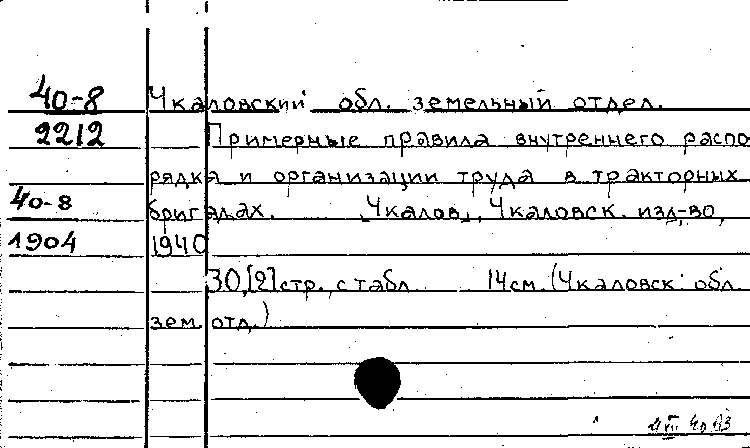 40-8 Чкаловский обл. земельный отдел.
2212 Примерные правила внутреннего распо
рядка и организации труда в тракторных
40-8 бригадах. Чкалов, Чкаловск. изд-во,
1904 1940
30,[2] стр., с табл 14 см. (Чкаловск. обл.
зем. отд.)